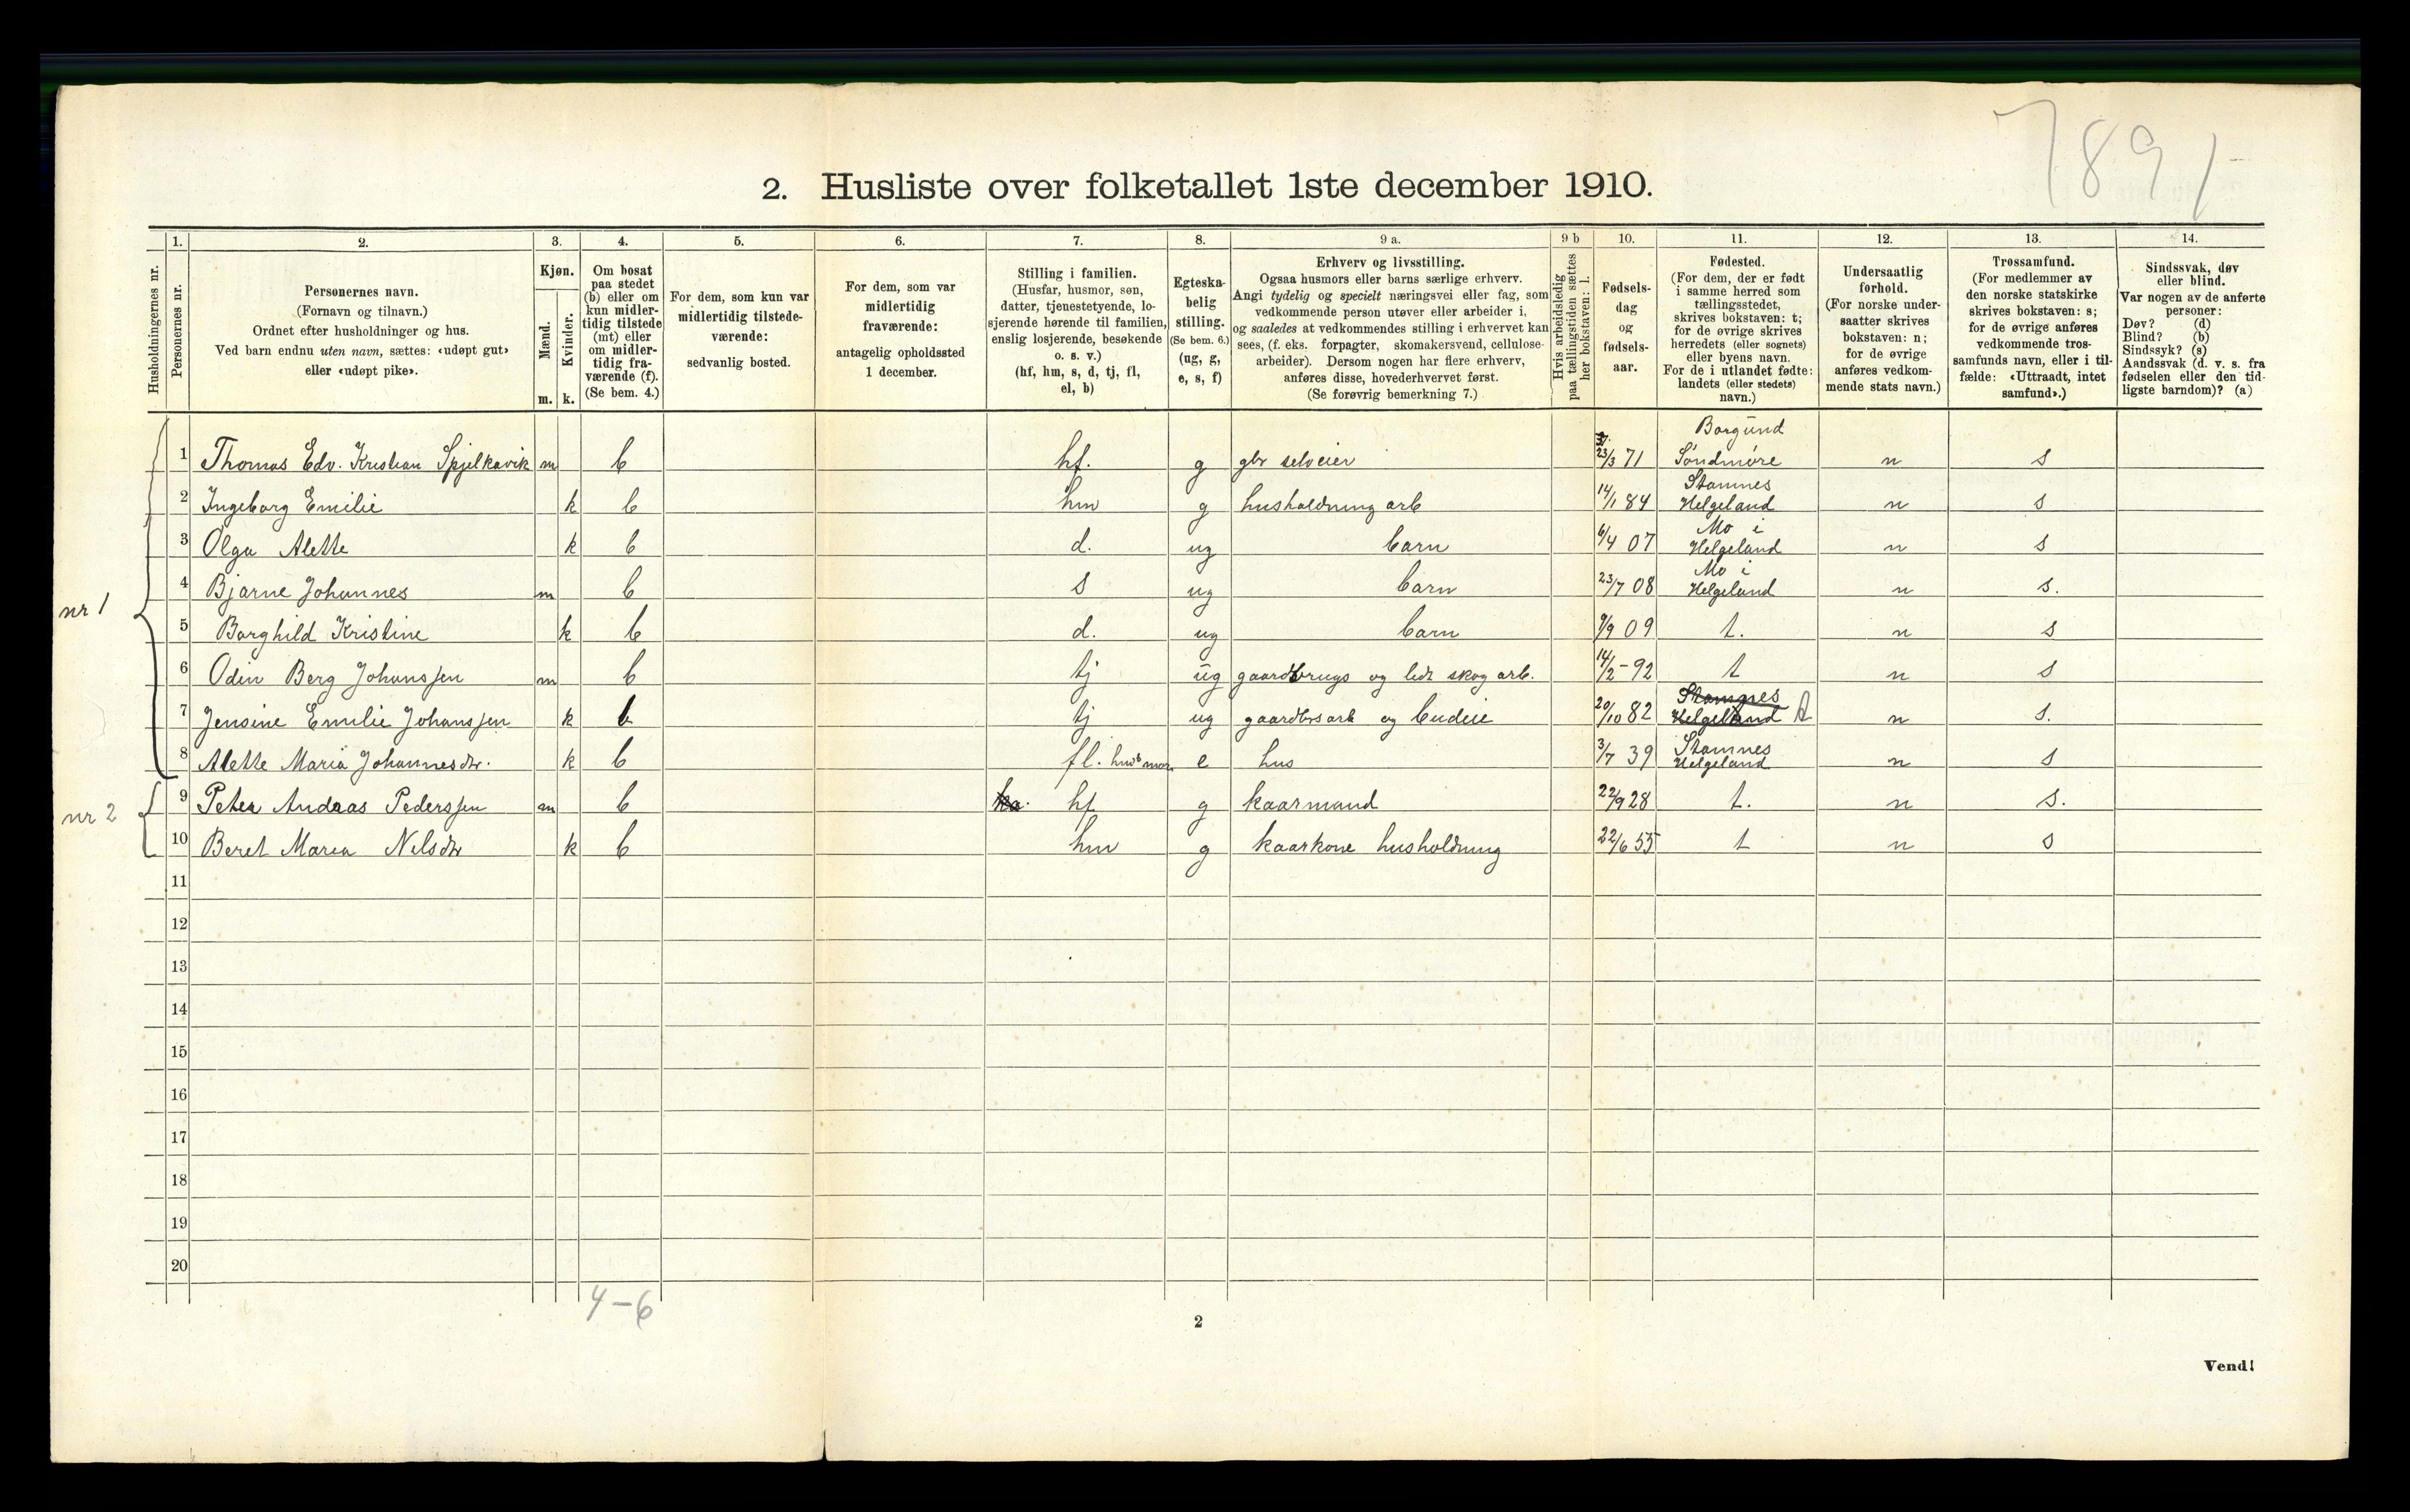 7891
2. Husliste over folketallet 1ste december 1910.
Husholdningernes nr.
1.
Personernes nr.
2.
Personernes navn.
(Fornavn og tilnavn.)
Ordnet efter husholdninger og hus.
Ved barn endnu uten navn, sættes: «udøpt gut»
eller «udøpt pike».
3.
Kjøn.
Mænd.
Kvinder.
m. k.
4.
Om bosat
paa stedet
(b) eller om
kun midler-
tidig tilstede
(mt) eller
om midler-
tidig fra-
værende (f).
(Se bem. 4.)
5.
For dem, som kun var
midlertidig tilstede-
værende:
sedvanlig bosted.
6.
For dem, som var
midlertidig
fraværende:
antagelig opholdssted
1 december.
7.
Stilling i familien.
(Husfar, husmor, søn,
datter, tjenestetyende, lo-
sjerende hørende til familien,
enslig losjerende, besøkende
o. s. v.)
(hf, hm, s, d, tj, fl,
el, b)
8.
Egteska-
belig
stilling.
(Se bem. 6.)
(ug, g,
e, s, f)
9 a.
Erhverv og livsstilling.
Ogsaa husmors eller barns særlige erhverv.
Angi tydelig og specielt næringsvei eller fag, som
vedkommende person utøver eller arbeider i,
og saaledes at vedkommendes stilling i erhvervet kan
sees, (f. eks. forpagter, skomakersvend, cellulose-
arbeider). Dersom nogen har flere erhverv,
anføres disse, hovederhvervet først.
(Se forøvrig bemerkning 7.)
9 b
Hvis arbeidsledig
paa tællingstiden sættes
her bokstaven: l.
10.
Fødsels-
dag
og
fødsels-
aar.
11.
Fødested.
(For dem, der er født
i samme herred som
tællingsstedet,
skrives bokstaven: t;
for de øvrige skrives
herredets (eller sognets)
eller byens navn.
For de i utlandet fødte:
landets (eller stedets)
navn.)
12.
Undersaatlig
forhold.
(For norske under-
saatter skrives
bokstaven: n;
for de øvrige
anføres vedkom-
mende stats navn.)
13.
Trossamfund.
(For medlemmer av
den norske statskirke
skrives bokstaven: s;
for de øvrige anføres
vedkommende tros-
samfunds navn, eller i til-
fælde: «Uttraadt, intet
samfund».)
14.
Sindssvak, døv
eller blind.
Var nogen av de anførte
personer:
Døv? (d)
Blind? (b)
Sindssyk? (s)
Aandssvak (d. v. s. fra
fødselen eller den tid-
ligste barndom)? (a)
Borgund
1 Thomas Edv. Kristian Spjelkavik m b hf. g gbr selveier 23/3 71 Söndmöre n s
Stamnes
2 Ingeborg Emilie k b hm g husholdning arb 14/1 84 Helgeland n s
Mo i
3 Olga Alette k b d. ug barn 6/4 07 Helgeland n s
Mo i
4 Bjarne Johannes m b s ug barn 23/7 08 Helgeland n s.
nr 1
5 Borghild Kristine k b d. ug barn 9/9 09 t. n s
6 Odin Berg Johanssen m b tj ug gaardbrugs og lidt skog arb. 14/2-92 t n s
Stamnes
7 Jensine Emilie Johanssen k b tj ug gaardbrs arb og budeie 20/10 82 Helgeland t n s.
Stamnes
8 Alette Maria Johannesdtr. k b fl. husb mor e hus 3/7 39 Helgeland n s
9 Peter Andreas Pederssen m b hf g kaarmand 22/9 28 t. n s.
nr 2
10 Beret Maria Nilsdtr k b hm g kaarkone husholdning 22/6 55 t n s
11
12
13
14
15
16
17
18
19
20
4-6
2
Vend!